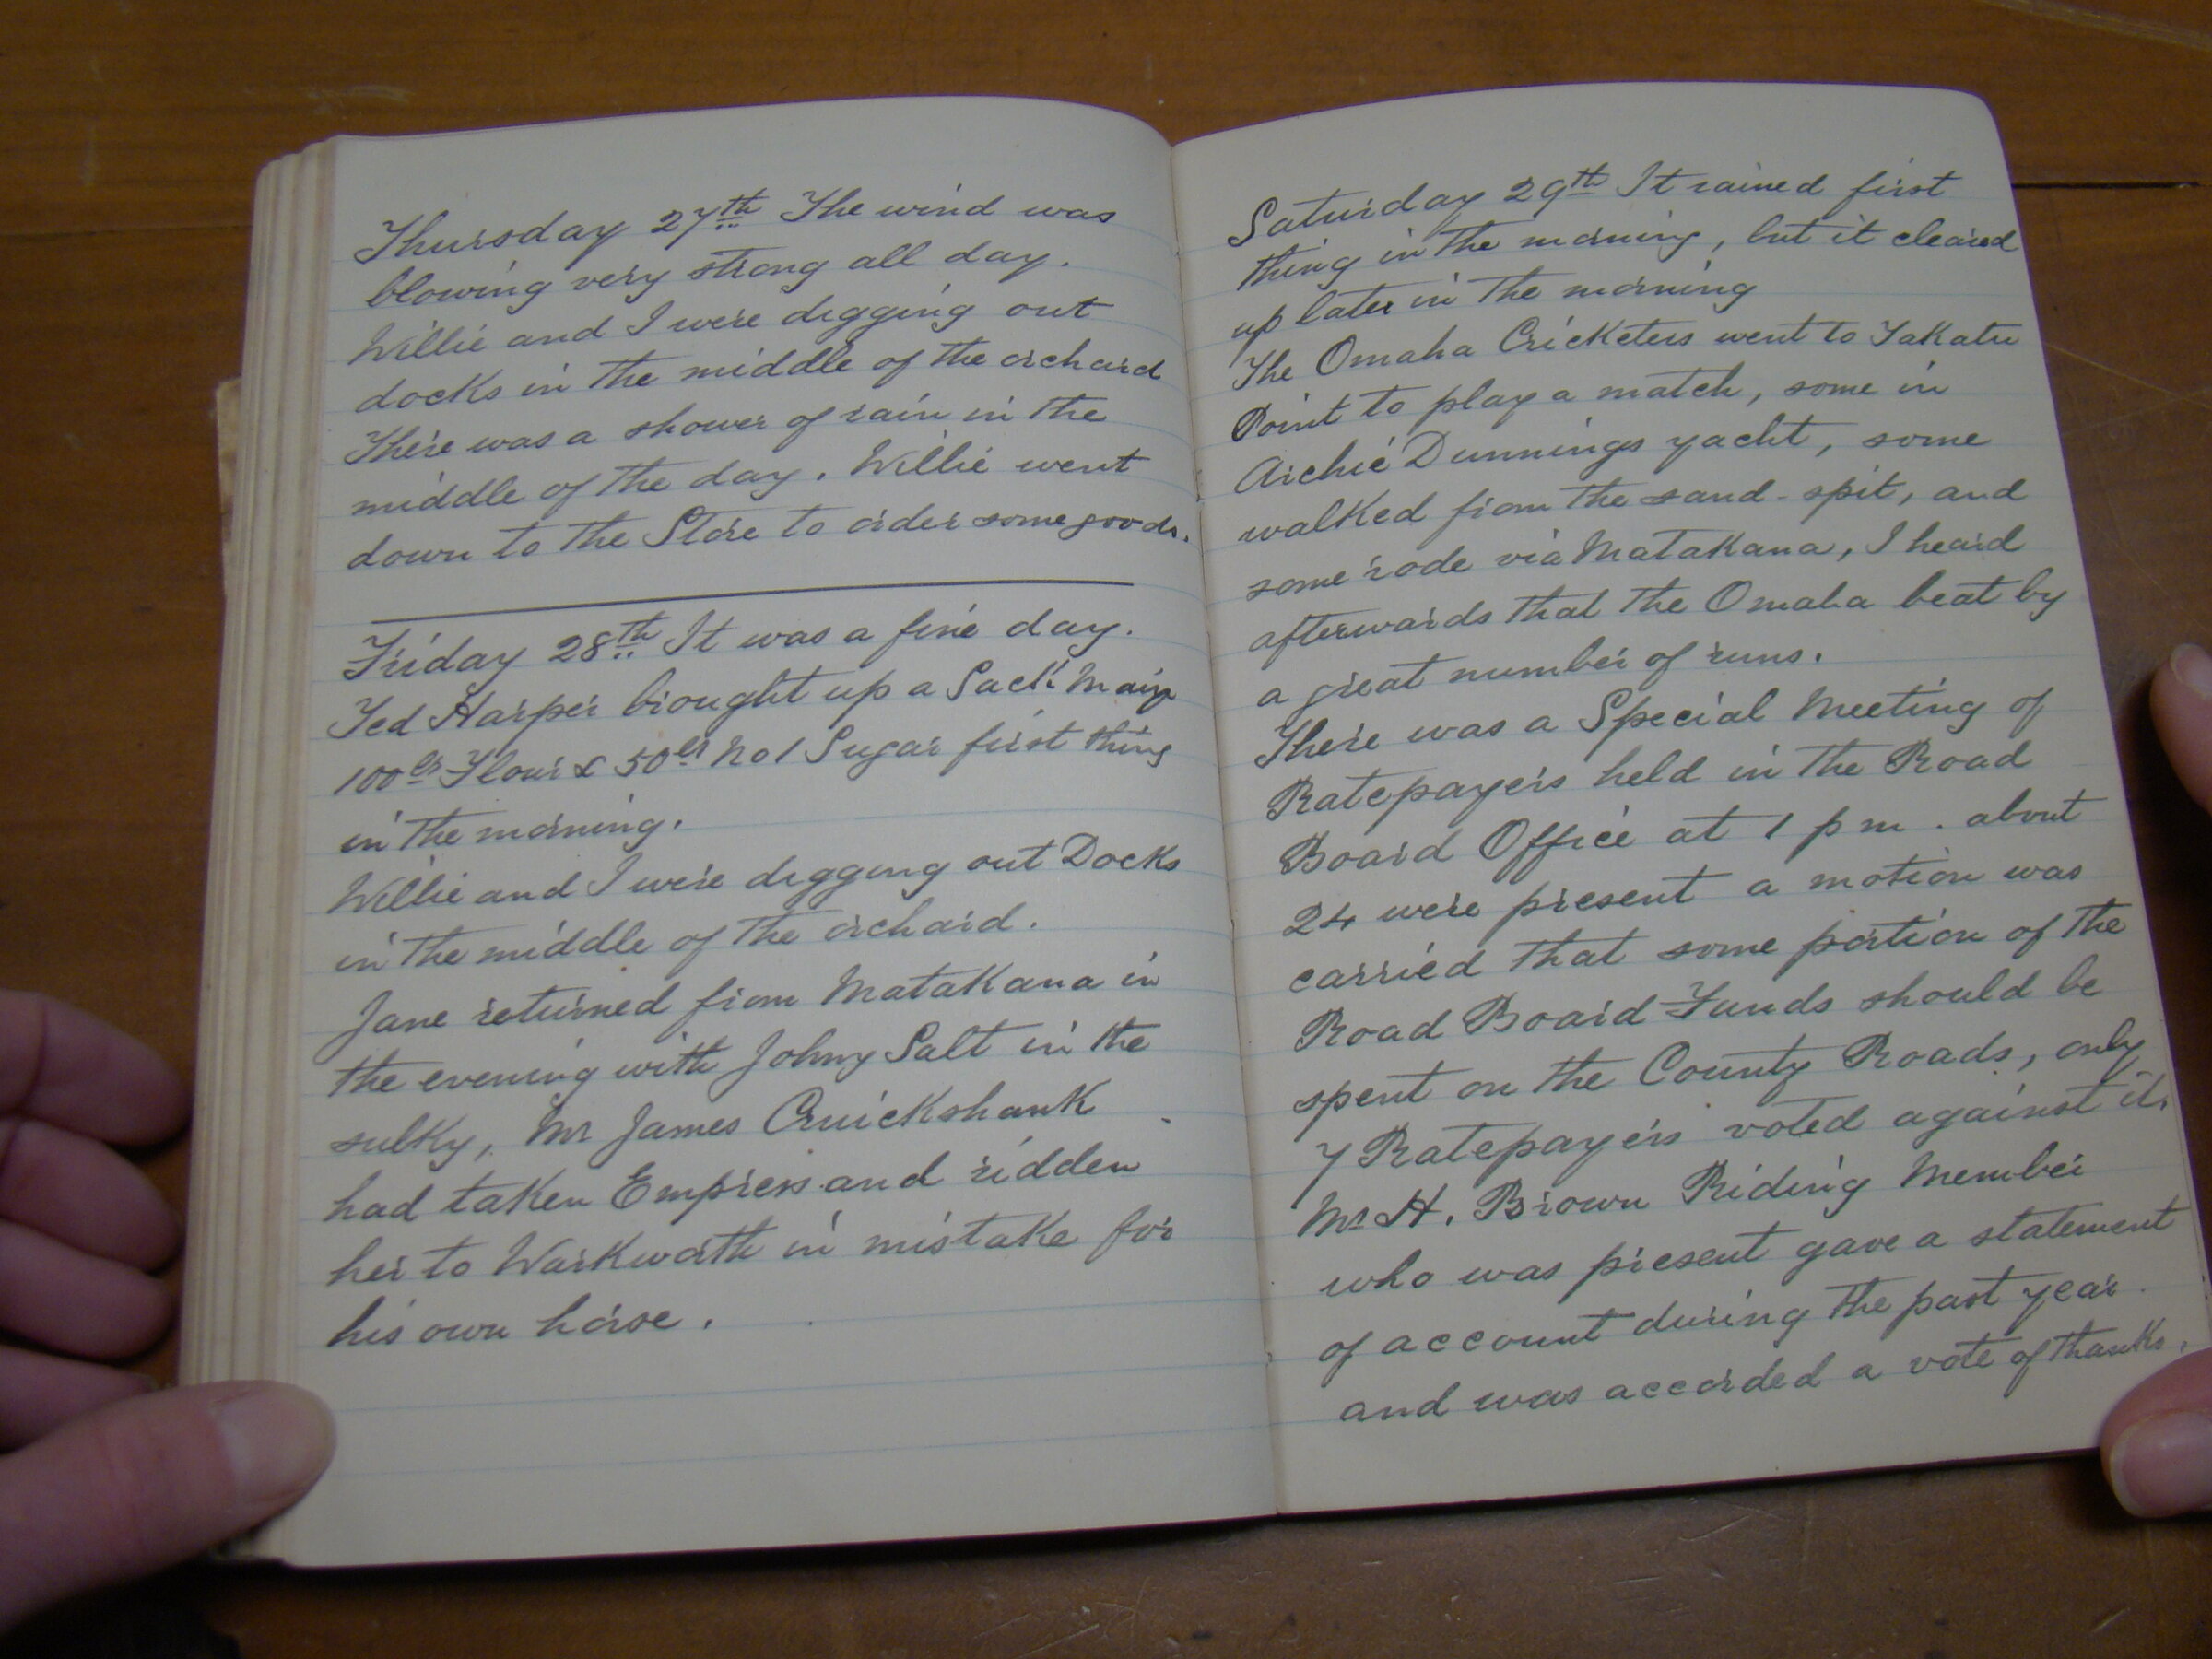 Thursday 27th The wind was
blowing very strong all day.
Willie and I were digging out
docks in the middle of the orchard
There was a shower of rain in the
middle of the day. Willie went
down to the Store to order some goods.
Friday 28th It was a fine day.
Ted Harper brought up a Sack
100lb Flour & 50lb No 1 Sugar first thing
in the morning.
Willie and I were digging out Docks
in the middle of the orchard.
Jane returned from Matakana in
the evening with Johny Salt in the
sulky, Mr James Cruickshank
had taken Empress and ridden
her to Warkworth in mistake for
his own horse.
Saturday 29th It rained first
thing in the morning, but it cleared
up later in the morning
The Omaha Cricketers went to Takatu
Point to play a match, some in
Archie Dunnings yacht, some
walked from the sand-spit, and
some rode via Matakana, I heard
afterwards that the Omaha beat by
a great number of runs.
There was a Special Meeting of
Ratepayers held in the Road
Board Office at 1 pm. about
24 were present a motion was
carried that some portion of the
Road Board Funds should be
spent on the County Roads, only
7 Ratepayers voted against it.
Mr H. Brown Riding Member
who was present gave a statement
of account during the past year.
and was accorded a vote of thanks.